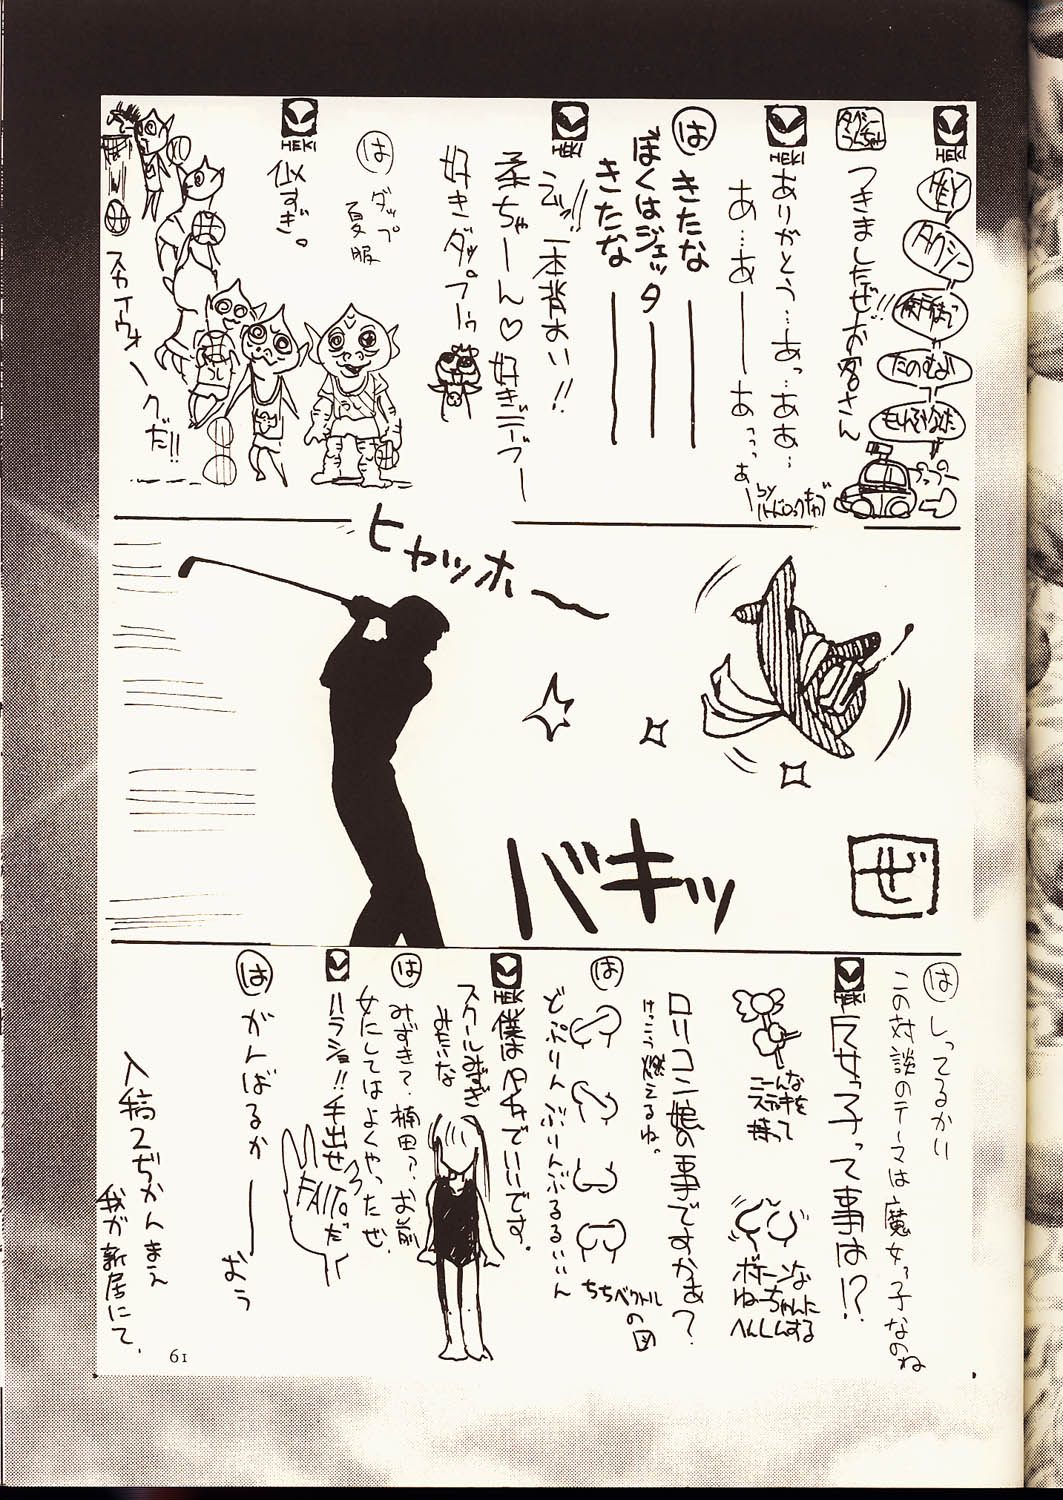 HEKI
HEY
タクシー
たのむよ
つきましたぜお客さん
HEKI
ありがとう…あっ…ああ…
あ…あーーあっっっぁ
by
は
きたな――
ぼくはジェッタ――
きたな――
HEKI
一本背おい!!
柔ちゃーん♡好きデブー
好きダップーゥ
は
ダップ
夏服
HEKI
似すぎ。
スカイウォークだ!!
ヒャッホー
バキッ
ぜ
は
しってるかい
この対談のテーマは魔女っ子なのね
HEKI
魔女っ子って事は!?
こんな
ステッキを
持って
ボイーンな
ねーちゃんに
へんしんする
ロリコン娘の事ですかぁ?
けっこう燃えるね。
は
どぷりんぶりんぶるるぃぃん
ちちベクトル
の図
HEKI
僕はペチャでいいです。
スクールみずぎ
みたいな
は
みずき?楠田?お前
女にしてはよくやったぜ
ハラショ!!手出せ
FAITOだ
は
がんばるか――おぅ
入稿2ぢかんまえ
我が新居にて、
61